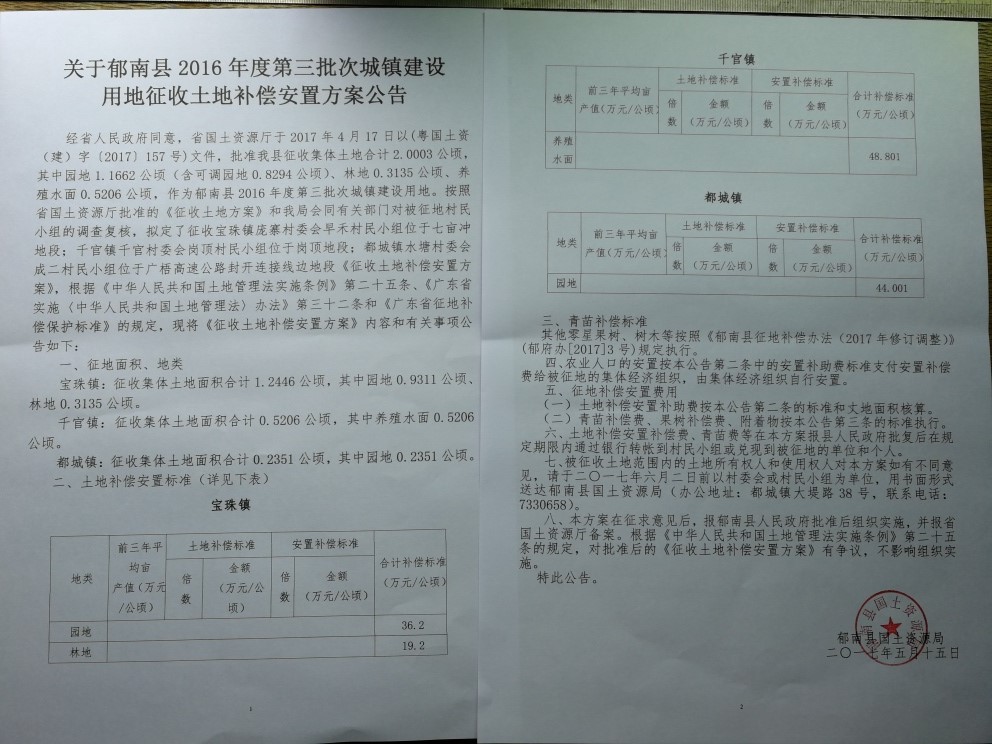 关于郁南县 2016 年度第三批次城镇建设
用地征收土地补偿安置方案公告
经省人民政府同意，省国土资源厅于 2017 年 4 月 17 日以(粤国土资
（建）字〔2017〕157 号)文件，批准我县征收集体土地合计 2.0003 公顷，
其中园地 1.1662 公顷（含可调园地 0.8294 公顷）、林地 0.3135 公顷、养
殖水面 0.5206 公顷，作为郁南县 2016 年度第三批次城镇建设用地。按照
省国土资源厅批准的《征收土地方案》和我局会同有关部门对被征地村民
小组的调查复核，拟定了征收宝珠镇庞寨村委会早禾村民小组位于七亩冲
地段；千官镇千官村委会岗顶村民小组位于岗顶地段；都城镇水塘村委会
成二村民小组位于广梧高速公路封开连接线边地段《征收土地补偿安置方
案》，根据《中华人民共和国土地管理法实施条例》第二十五条、《广东省
实施〈中华人民共和国土地管理法〉办法》第三十二条和《广东省征地补
偿保护标准》的规定，现将《征收土地补偿安置方案》内容和有关事项公
告如下：
一、征地面积、地类
宝珠镇：征收集体土地面积合计 1.2446 公顷，其中园地 0.9311 公顷、
林地 0.3135 公顷。
千官镇：征收集体土地面积合计 0.5206 公顷，其中养殖水面 0.5206
公顷。
都城镇：征收集体土地面积合计 0.2351 公顷，其中园地 0.2351 公顷。
二、土地补偿安置标准（详见下表）
宝珠镇
地类 前三年平均亩产值(万元/公顷) 土地补偿标准 安置补偿标准 合计补偿标准（万元/公顷）
倍数 金额（万元/公顷） 倍数 金额（万元/公顷）
园地 36.2
林地 19.2
1
千官镇
地类 前三年平均亩产值(万元/公顷) 土地补偿标准 安置补偿标准 合计补偿标准（万元/公顷）
倍数 金额（万元/公顷） 倍数 金额（万元/公顷）
养殖水面 48.801
都城镇
地类 前三年平均亩产值(万元/公顷) 土地补偿标准 安置补偿标准 合计补偿标准（万元/公顷）
倍数 金额（万元/公顷） 倍数 金额（万元/公顷）
园地 44.001
三、青苗补偿标准
其他零星果树、树木等按照《郁南县征地补偿办法（2017 年修订调整）》
(郁府办[2017]3 号)规定执行。
四、农业人口的安置按本公告第二条中的安置补助费标准支付安置补偿
费给被征地的集体经济组织，由集体经济组织自行安置。
五、征地补偿安置费用
（一）土地补偿安置补助费按本公告第二条的标准和丈地面积核算。
（二）青苗补偿费、果树补偿费、附着物按本公告第三条的标准执行。
六、土地补偿安置补偿费、青苗费等在本方案报县人民政府批复后在规
定期限内通过银行转帐到村民小组或兑现到被征地的单位和个人。
七、被征收土地范围内的土地所有权人和使用权人对本方案如有不同意
见，请于二〇一七年六月二日前以村委会或村民小组为单位，用书面形式
送达郁南县国土资源局（办公地址：都城镇大堤路 38 号，联系电话：
7330658）。
八、本方案在征求意见后，报郁南县人民政府批准后组织实施，并报省
国土资源厅备案。根据《中华人民共和国土地管理法实施条例》第二十五
条的规定，对批准后的《征收土地补偿安置方案》有争议，不影响组织实
施。
特此公告。
郁南县国土资源局
二〇一七年五月十五日
2